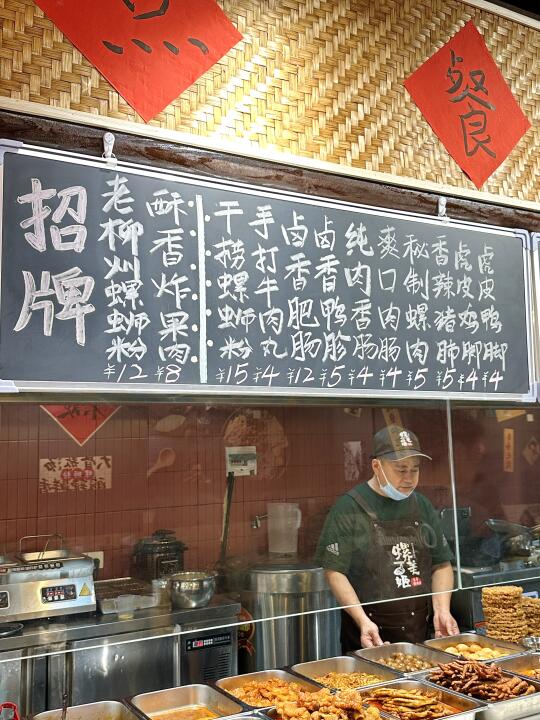 餐
招牌
老柳州螺蛳粉
¥12
酥香炸果肉
¥8
干捞螺蛳粉
¥15
手打牛肉丸
¥4
卤香肥肠
¥12
卤香鸭胗
¥5
纯肉香肠
¥4
爽口肉肠
¥4
秘制螺肉
¥5
香辣猪肺
¥5
虎皮鸡脚
¥4
虎皮鸭脚
¥4
adidas